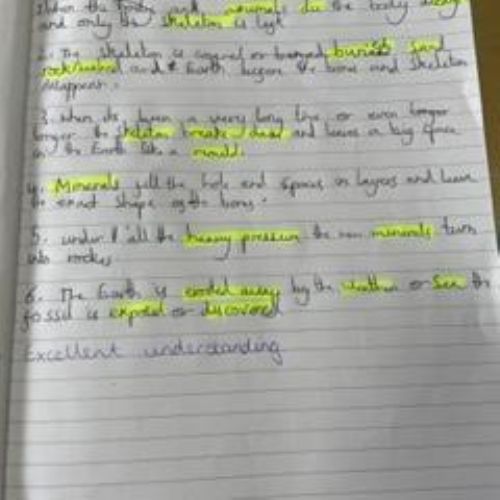 When the body and animals die the body decays
and only the skeleton is left
2. The skeleton is covered or buried buried sand
rock/mineral and Earth the bone and skeleton
disappears.
3. When its been a very long time or even longer
longer the skeleton breaks down and leaves a big space
in the Earth like a mould.
4. Minerals fill the hole and spaces in layers and leave
the exact shape of the bones.
5. under all the heavy pressure the new minerals turn
into rocks
6. The Earth is eroded away by the weather or Sea the
fossil is exposed or discovered
Excellent understanding